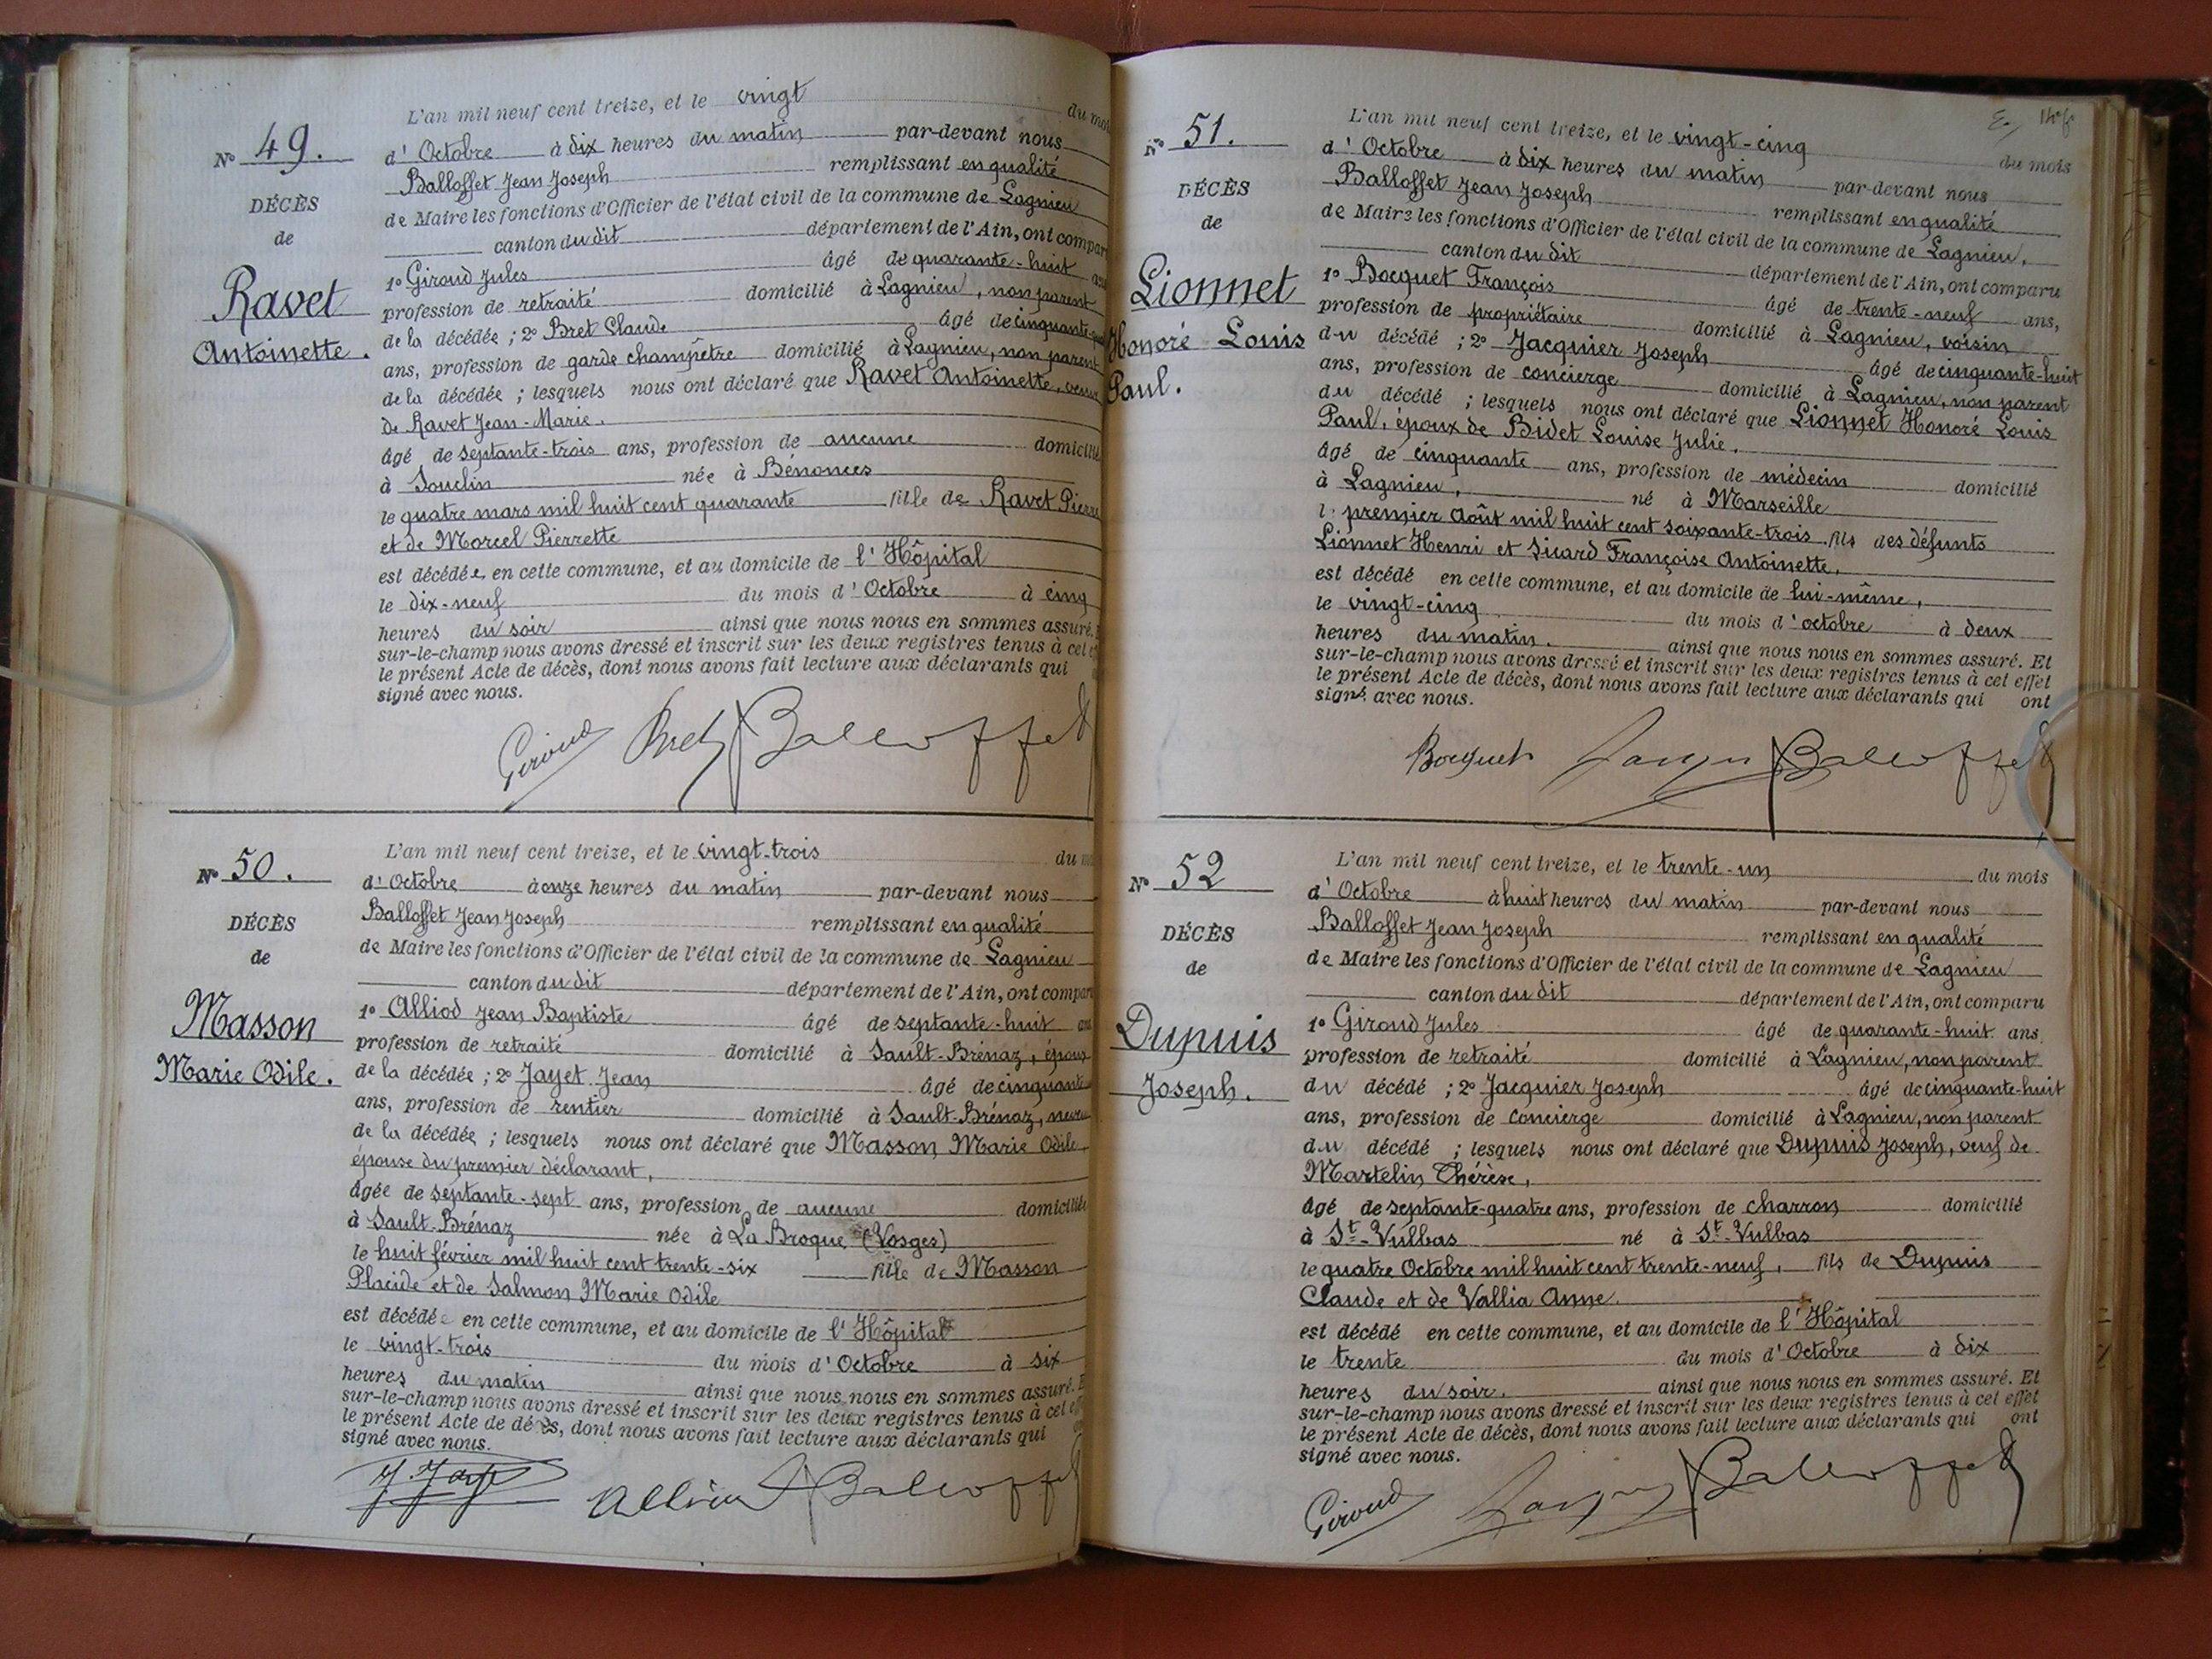 N° 49.
DÉCÈS
de
Ravet
Antoinette.
L'an mil neuf cent treize, et le vingt du mois
d'Octobre à dix heures du matin par-devant nous
Balloffet Jean Joseph remplissant en qualité
de Maire les fonctions d'Officier de l'état civil de la commune de Lagnieu
canton du dit département de l'Ain, ont compar
1° Giroud Jules âgé de quarante-huit ans
profession de retraité domicilié à Lagnieu, non parent
de la décédée ; 2° Bret Claude âgé de cinquante
ans, profession de garde champêtre domicilié à Lagnieu, non parent
de la décédée ; lesquels nous ont déclaré que Ravet Antoinette, veuve
de Ravet Jean-Marie.
âgé de septante-trois ans, profession de aucune domicilié
à Souclin née à Bénonces
le quatre mars mil huit cent quarante fille de Ravet Pierre
et de Morcel Pierrette
est décédée en cette commune, et au domicile de l'Hôpital
le dix-neuf du mois d'Octobre à cinq
heures du soir ainsi que nous nous en sommes assuré.
sur-le-champ nous avons dressé et inscrit sur les deux registres tenus à cet
le présent Acte de décès, dont nous avons fait lecture aux déclarants qui
signé avec nous.
Giroud Bret Balloffet
N° 50.
DÉCÈS
de
Masson
Marie Odile.
L'an mil neuf cent treize, et le vingt-trois du
d'Octobre à onze heures du matin par-devant nous
Balloffet Jean Joseph remplissant en qualité
de Maire les fonctions d'Officier de l'état civil de la commune de Lagnieu
canton du dit département de l'Ain, ont compar
1° Alliod Jean Baptiste âgé de septante-huit ans
profession de retraité domicilié à Sault-Brénaz, époux
de la décédée ; 2° Jayet Jean âgé de cinquante
ans, profession de rentier domicilié à Sault-Brénaz, neveu
de la décédée ; lesquels nous ont déclaré que Masson Marie Odile,
épouse du premier déclarant,
âgée de septante-sept ans, profession de aucune domiciliée
à Sault-Brénaz née à La Broque (Vosges)
le huit février mil huit cent trente-six fille de Masson
Placide et de Salmon Marie Odile
est décédée en cette commune, et au domicile de l'Hôpital
le vingt-trois du mois d'Octobre à six
heures du matin ainsi que nous nous en sommes assuré.
sur-le-champ nous avons dressé et inscrit sur les deux registres tenus à cet
le présent Acte de décès, dont nous avons fait lecture aux déclarants qui
signé avec nous.
J. Jayet Alliod Balloffet
N° 51.
DÉCÈS
de
Lionnet
Honoré Louis
Paul.
L'an mil neuf cent treize, et le vingt-cinq du mois
d'Octobre à dix heures du matin par-devant nous
Balloffet Jean Joseph remplissant en qualité
de Maire les fonctions d'Officier de l'état civil de la commune de Lagnieu,
canton du dit département de l'Ain, ont comparu
1° Bocquet François âgé de trente-neuf ans,
profession de propriétaire domicilié à Lagnieu, voisin
du décédé ; 2° Jacquier Joseph âgé de cinquante-huit
ans, profession de concierge domicilié à Lagnieu, non parent
du décédé ; lesquels nous ont déclaré que Lionnet Honoré Louis
Paul, époux de Bidet Louise Julie.
âgé de cinquante ans, profession de médecin domicilié
à Lagnieu, né à Marseille
le premier Août mil huit cent soixante-trois fils des défunts
Lionnet Henri et Sicard Françoise Antoinette,
est décédé en cette commune, et au domicile de lui-même,
le vingt-cinq du mois d'octobre à deux
heures du matin. ainsi que nous nous en sommes assuré. Et
sur-le-champ nous avons dressé et inscrit sur les deux registres tenus à cet effet
le présent Acte de décès, dont nous avons fait lecture aux déclarants qui ont
signé avec nous.
Bocquet Jacquier Balloffet
N° 52
DÉCÈS
de
Dupuis
Joseph.
L'an mil neuf cent treize, et le trente-un du mois
d'Octobre à huit heures du matin par-devant nous
Balloffet Jean Joseph remplissant en qualité
de Maire les fonctions d'Officier de l'état civil de la commune de Lagnieu
canton du dit département de l'Ain, ont comparu
1° Giroud Jules âgé de quarante-huit ans
profession de retraité domicilié à Lagnieu, non parent
du décédé ; 2° Jacquier Joseph âgé de cinquante-huit
ans, profession de concierge domicilié à Lagnieu, non parent
du décédé ; lesquels nous ont déclaré que Dupuis Joseph, veuf de
Martelin Thérèse,
âgé de septante-quatre ans, profession de charron domicilié
à St-Vulbas né à St-Vulbas
le quatre Octobre mil huit cent trente-neuf, fils de Dupuis
Claude et de Vallia Anne.
est décédé en cette commune, et au domicile de l'Hôpital
le trente du mois d'Octobre à dix
heures du soir. ainsi que nous nous en sommes assuré. Et
sur-le-champ nous avons dressé et inscrit sur les deux registres tenus à cet effet
le présent Acte de décès, dont nous avons fait lecture aux déclarants qui ont
signé avec nous.
Giroud Jacquier Balloffet